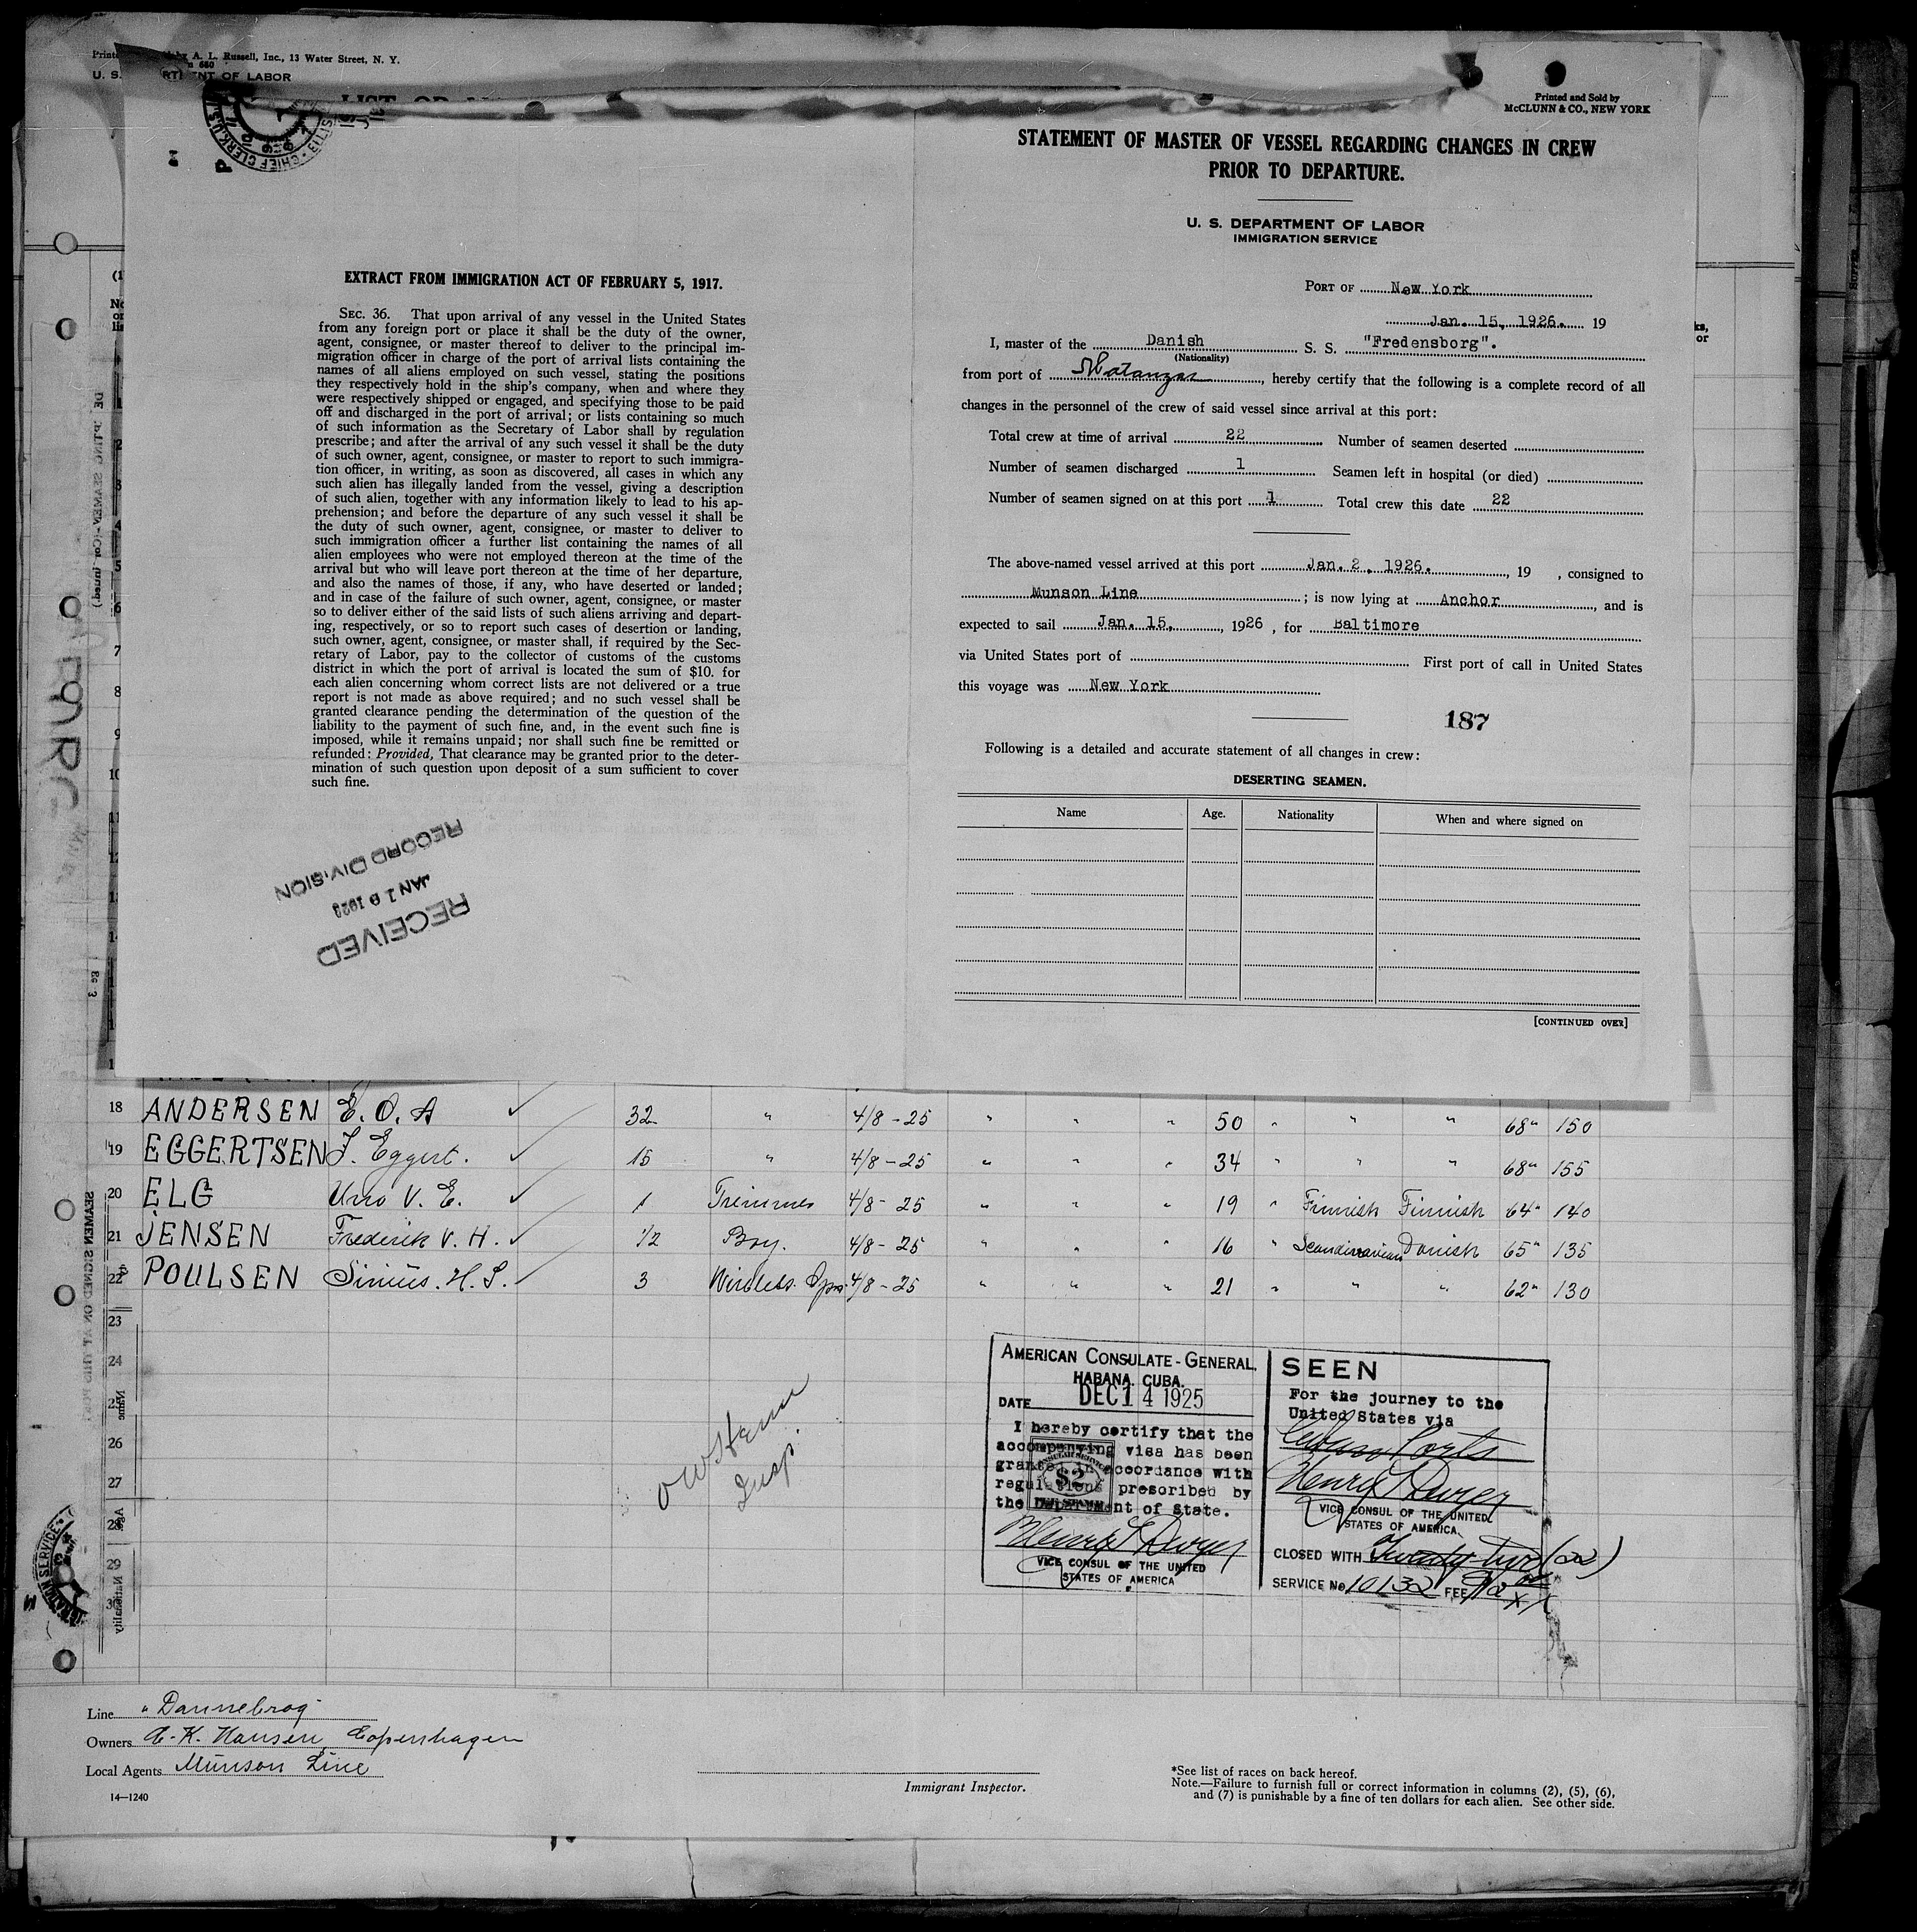 A. L. Russell, Inc., 13 Water Street, N. Y.
U. S. DEPARTMENT OF LABOR
Printed and Sold by
McCLUNN & CO., NEW YORK
EXTRACT FROM IMMIGRATION ACT OF FEBRUARY 5, 1917.
SEC. 36. That upon arrival of any vessel in the United States
from any foreign port or place it shall be the duty of the owner,
agent, consignee, or master thereof to deliver to the principal im-
migration officer in charge of the port of arrival lists containing the
names of all aliens employed on such vessel, stating the positions
they respectively hold in the ship's company, when and where they
were respectively shipped or engaged, and specifying those to be paid
off and discharged in the port of arrival; or lists containing so much
of such information as the Secretary of Labor shall by regulation
prescribe; and after the arrival of any such vessel it shall be the duty
of such owner, agent, consignee, or master to report to such immigra-
tion officer, in writing, as soon as discovered, all cases in which any
such alien has illegally landed from the vessel, giving a description
of such alien, together with any information likely to lead to his ap-
prehension; and before the departure of any such vessel it shall be
the duty of such owner, agent, consignee, or master to deliver to
such immigration officer a further list containing the names of all
alien employees who were not employed thereon at the time of the
arrival but who will leave port thereon at the time of her departure,
and also the names of those, if any, who have deserted or landed;
and in case of the failure of such owner, agent, consignee, or master
so to deliver either of the said lists of such aliens arriving and depart-
ing, respectively, or so to report such cases of desertion or landing,
such owner, agent, consignee, or master shall, if required by the Sec-
retary of Labor, pay to the collector of customs of the customs
district in which the port of arrival is located the sum of $10. for
each alien concerning whom correct lists are not delivered or a true
report is not made as above required; and no such vessel shall be
granted clearance pending the determination of the question of the
liability to the payment of such fine, and, in the event such fine is
imposed, while it remains unpaid; nor shall such fine be remitted or
refunded: Provided, That clearance may be granted prior to the deter-
mination of such question upon deposit of a sum sufficient to cover
such fine.
RECEIVED
JAN 19 1926
RECORD DIVISION
STATEMENT OF MASTER OF VESSEL REGARDING CHANGES IN CREW
PRIOR TO DEPARTURE.
U. S. DEPARTMENT OF LABOR
IMMIGRATION SERVICE
PORT OF New York
Jan. 15, 1926. 19
I, master of the Danish S. S. "Fredensborg".
(Nationality)
from port of Matanzas, hereby certify that the following is a complete record of all
changes in the personnel of the crew of said vessel since arrival at this port:
Total crew at time of arrival 22 Number of seamen deserted
Number of seamen discharged 1 Seamen left in hospital (or died)
Number of seamen signed on at this port 1 Total crew this date 22
The above-named vessel arrived at this port Jan. 2, 1926., 19 , consigned to
Munson Line ; is now lying at Anchor, and is
expected to sail Jan. 15, , 1926 , for Baltimore
via United States port of First port of call in United States
this voyage was New York
187
Following is a detailed and accurate statement of all changes in crew:
DESERTING SEAMEN.
Name Age. Nationality When and where signed on
[CONTINUED OVER]
18 ANDERSEN E. O. A 32 " 4/8 - 25 " " " 50 " " " 68" 150
19 EGGERTSEN J. Eggert. 15 " 4/8 - 25 " " " 34 " " " 68" 155
20 ELG Uno V. E. 1 Trimmer 4/8 - 25 " " " 19 " Finnish Finnish 64" 140
21 JENSEN Frederik V. H. 1/2 Boy. 4/8 - 25 " " " 16 " Scandinavian Danish 65" 135
22 POULSEN Sirius. H. S. 3 Wireless Opr 4/8 - 25 " " " 21 " " " 62" 130
23
24
25
26
27
28
29
30
Insp.
AMERICAN CONSULATE-GENERAL,
HABANA, CUBA.
DATE DEC 14 1925
I hereby certify that the
accompanying visa has been
granted in accordance with
regulations prescribed by
the Department of State.
$2
Henry T Dwyer
VICE CONSUL OF THE UNITED
STATES OF AMERICA
SEEN
For the journey to the
United States via
Cuban Ports
Henry T Dwyer
VICE CONSUL OF THE UNITED
STATES OF AMERICA
CLOSED WITH Twenty two (22)
SERVICE No. 10132 FEE $2
Line "Dannebrog"
Owners C. K. Hansen, Copenhagen
Local Agents Munson Line
14—1240
Immigrant Inspector.
*See list of races on back hereof.
Note.—Failure to furnish full or correct information in columns (2), (5), (6),
and (7) is punishable by a fine of ten dollars for each alien. See other side.